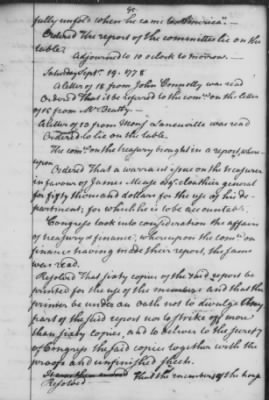 fully unfold when he came to America."
Ordered the report of the committee lie on the
table.
Adjourned to 10 oClock to morrow.
Saturday Septr. 19. 1778
A letter of 18 from John Connolly was read
Ordered That it be referred to the comee. on the letter
of 15 from Mr Beatty.
A letter of 13 from Monsr Janeville was read
Ordered to lie on the table.
The comee. on the treasury brought in a report, where-
upon
Ordered That a warrant issue on the treasurer
in favour of James Mease Esqr. Clothier general
for fifty thousand dollars for the use of his de-
partment; for which he is to be accountable.
Congress took into consideration the affairs
of treasury & finance, whereupon the comee. on
finance having made their report, the same
was read.
Resolved That sixty copies of the said report be
printed for the use of the members and that the
printer be under an oath not to divulge any
part of the said report nor to strike off more
than sixty copies, and to deliver to the secrety
of Congress the said copies together with the
proof and unfinished sheets.
Resolved That the members of the house